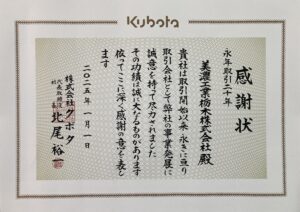 Kubota
感謝状
永年取引二十年
美濃工業栃木株式会社殿
貴社は取引開始以来永きに亘り
取引会社として弊社の事業発展に
誠意を持って尽力されました
その功績は誠に大なるものがあります
依ってここに深く感謝の意を表し
ます
二〇二五年一月一日
株式会社クボタ
代表取締役社長
北尾裕一